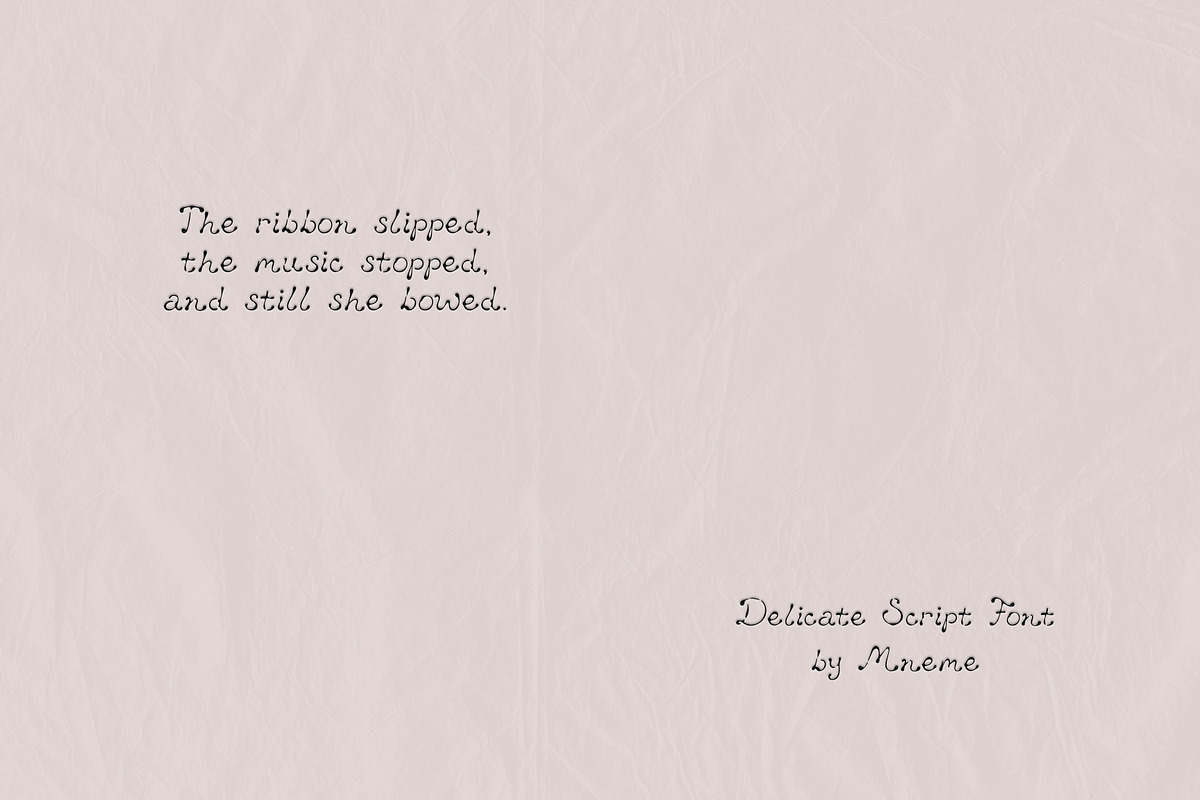 The ribbon slipped,
the music stopped,
and still she bowed.
Delicate Script Font
by Mneme